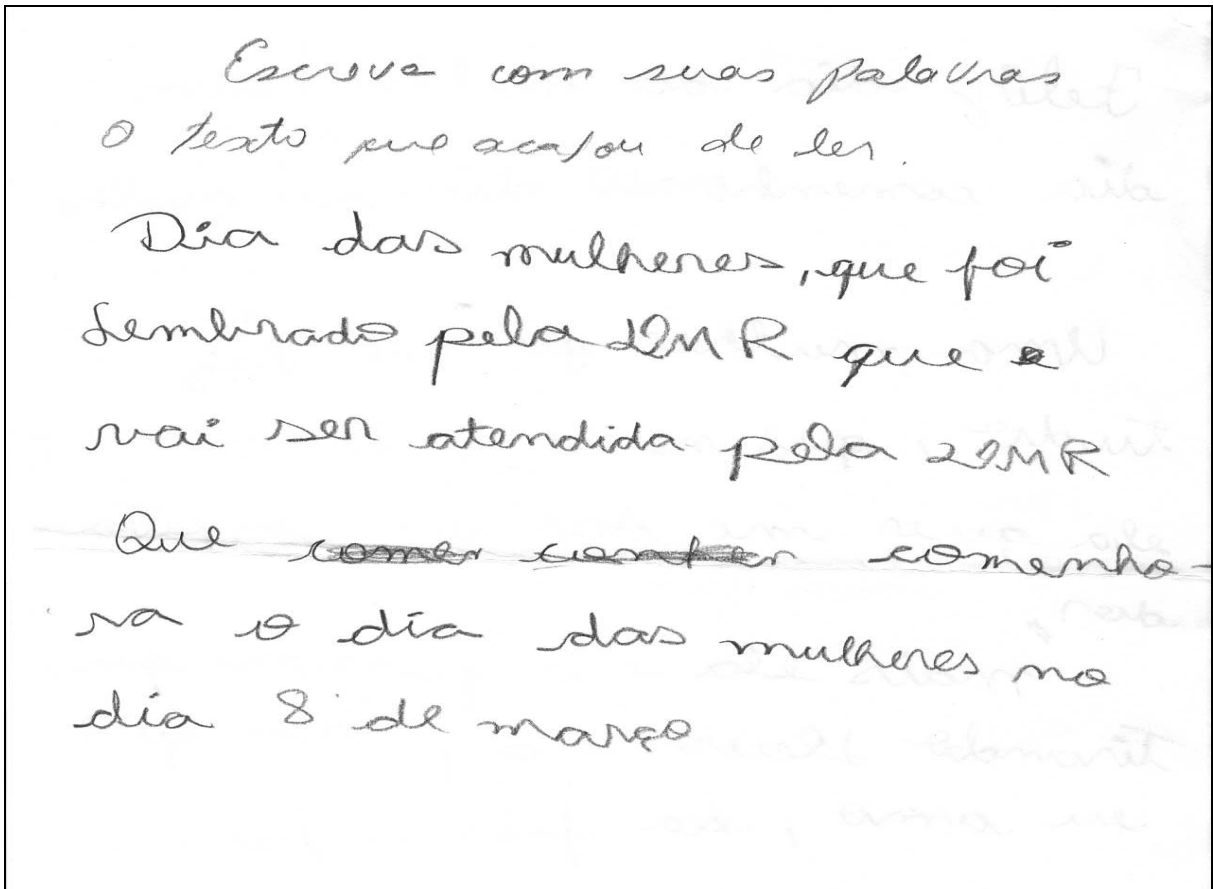 Escreva com suas palavras
o texto que acabou de ler.
Dia das mulheres, que foi
Lembrado pela que
vai ser atendida pela
Que comemho-
ra o dia das mulheres no
dia 8 de março